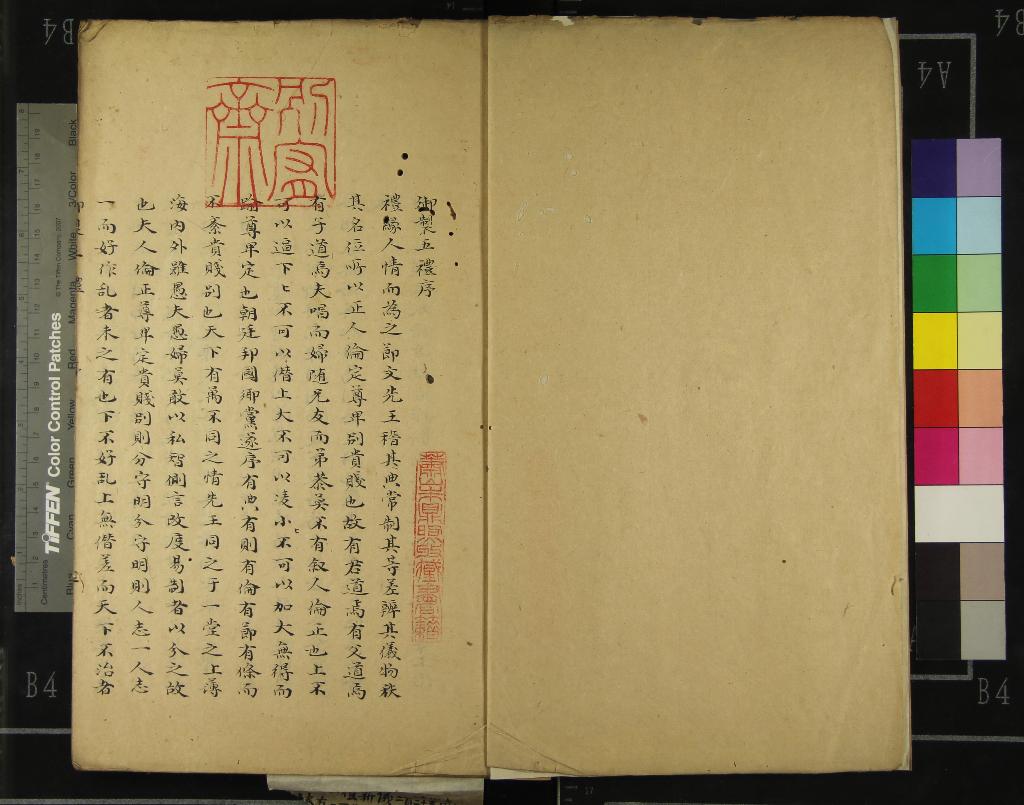 御製五禮序
禮緣人情而為之節文先王稽其典常制其等差辨其儀物秩
其名位所以正人倫定尊卑別貴賤也故有君道焉有父道焉
有子道焉夫唱而婦随兄友而弟恭莫不有叙人倫正也上不
可以逼下下不可以僭上大不可以凌小小不可以加大無得而
踰尊卑定也朝廷邦國鄉黨遂序有典有則有倫有節有條而
不紊貴賤別也天下有萬不同之情先王同之于一堂之上薄
海内外雖愚夫愚婦莫敢以私智側言改度易制者以分之故
也夫人倫正尊卑定貴賤別則分守明分守明則人志一人志
一而好作乱者未之有也下不好乱上無僭差而天下不治者
別宥齋
蕭山朱鼎煦收藏書籍
TIFFEN Color Control Patches
© The Tiffen Company, 2007
Centimetres
Inches
Blue
Cyan
Green
Yellow
Red
Magenta
White
3/Color
Black
B4
A4
B4
B4
B4